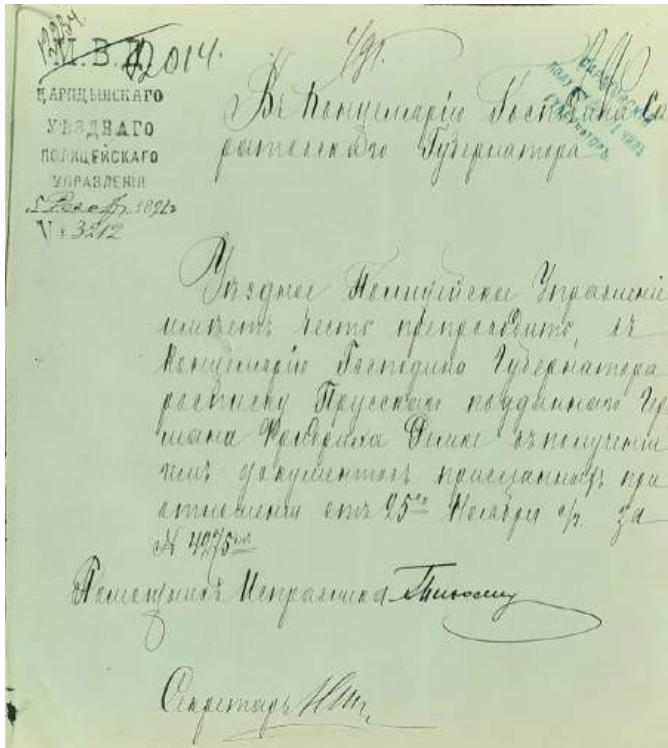 12014.
М.В.Д.
ЦАРИЦЫНСКАГО
УѢЗДНАГО
ПОЛИЦЕЙСКАГО
УПРАВЛЕНІЯ
№ 3212
Въ Канцелярію Господина Са
ратовскаго Губернатора
Уѣздное Полицейское Управленіе
имѣетъ честь препроводить, въ
Канцелярію Господина Губернатора
росписку Прусскаго подданнаго Гер
мана Фридриха въ полученіи
имъ документовъ присланныхъ при
отношеніи отъ 25го Ноября с/г. за
№ 4275
Помощникъ Исправника
Секретарь